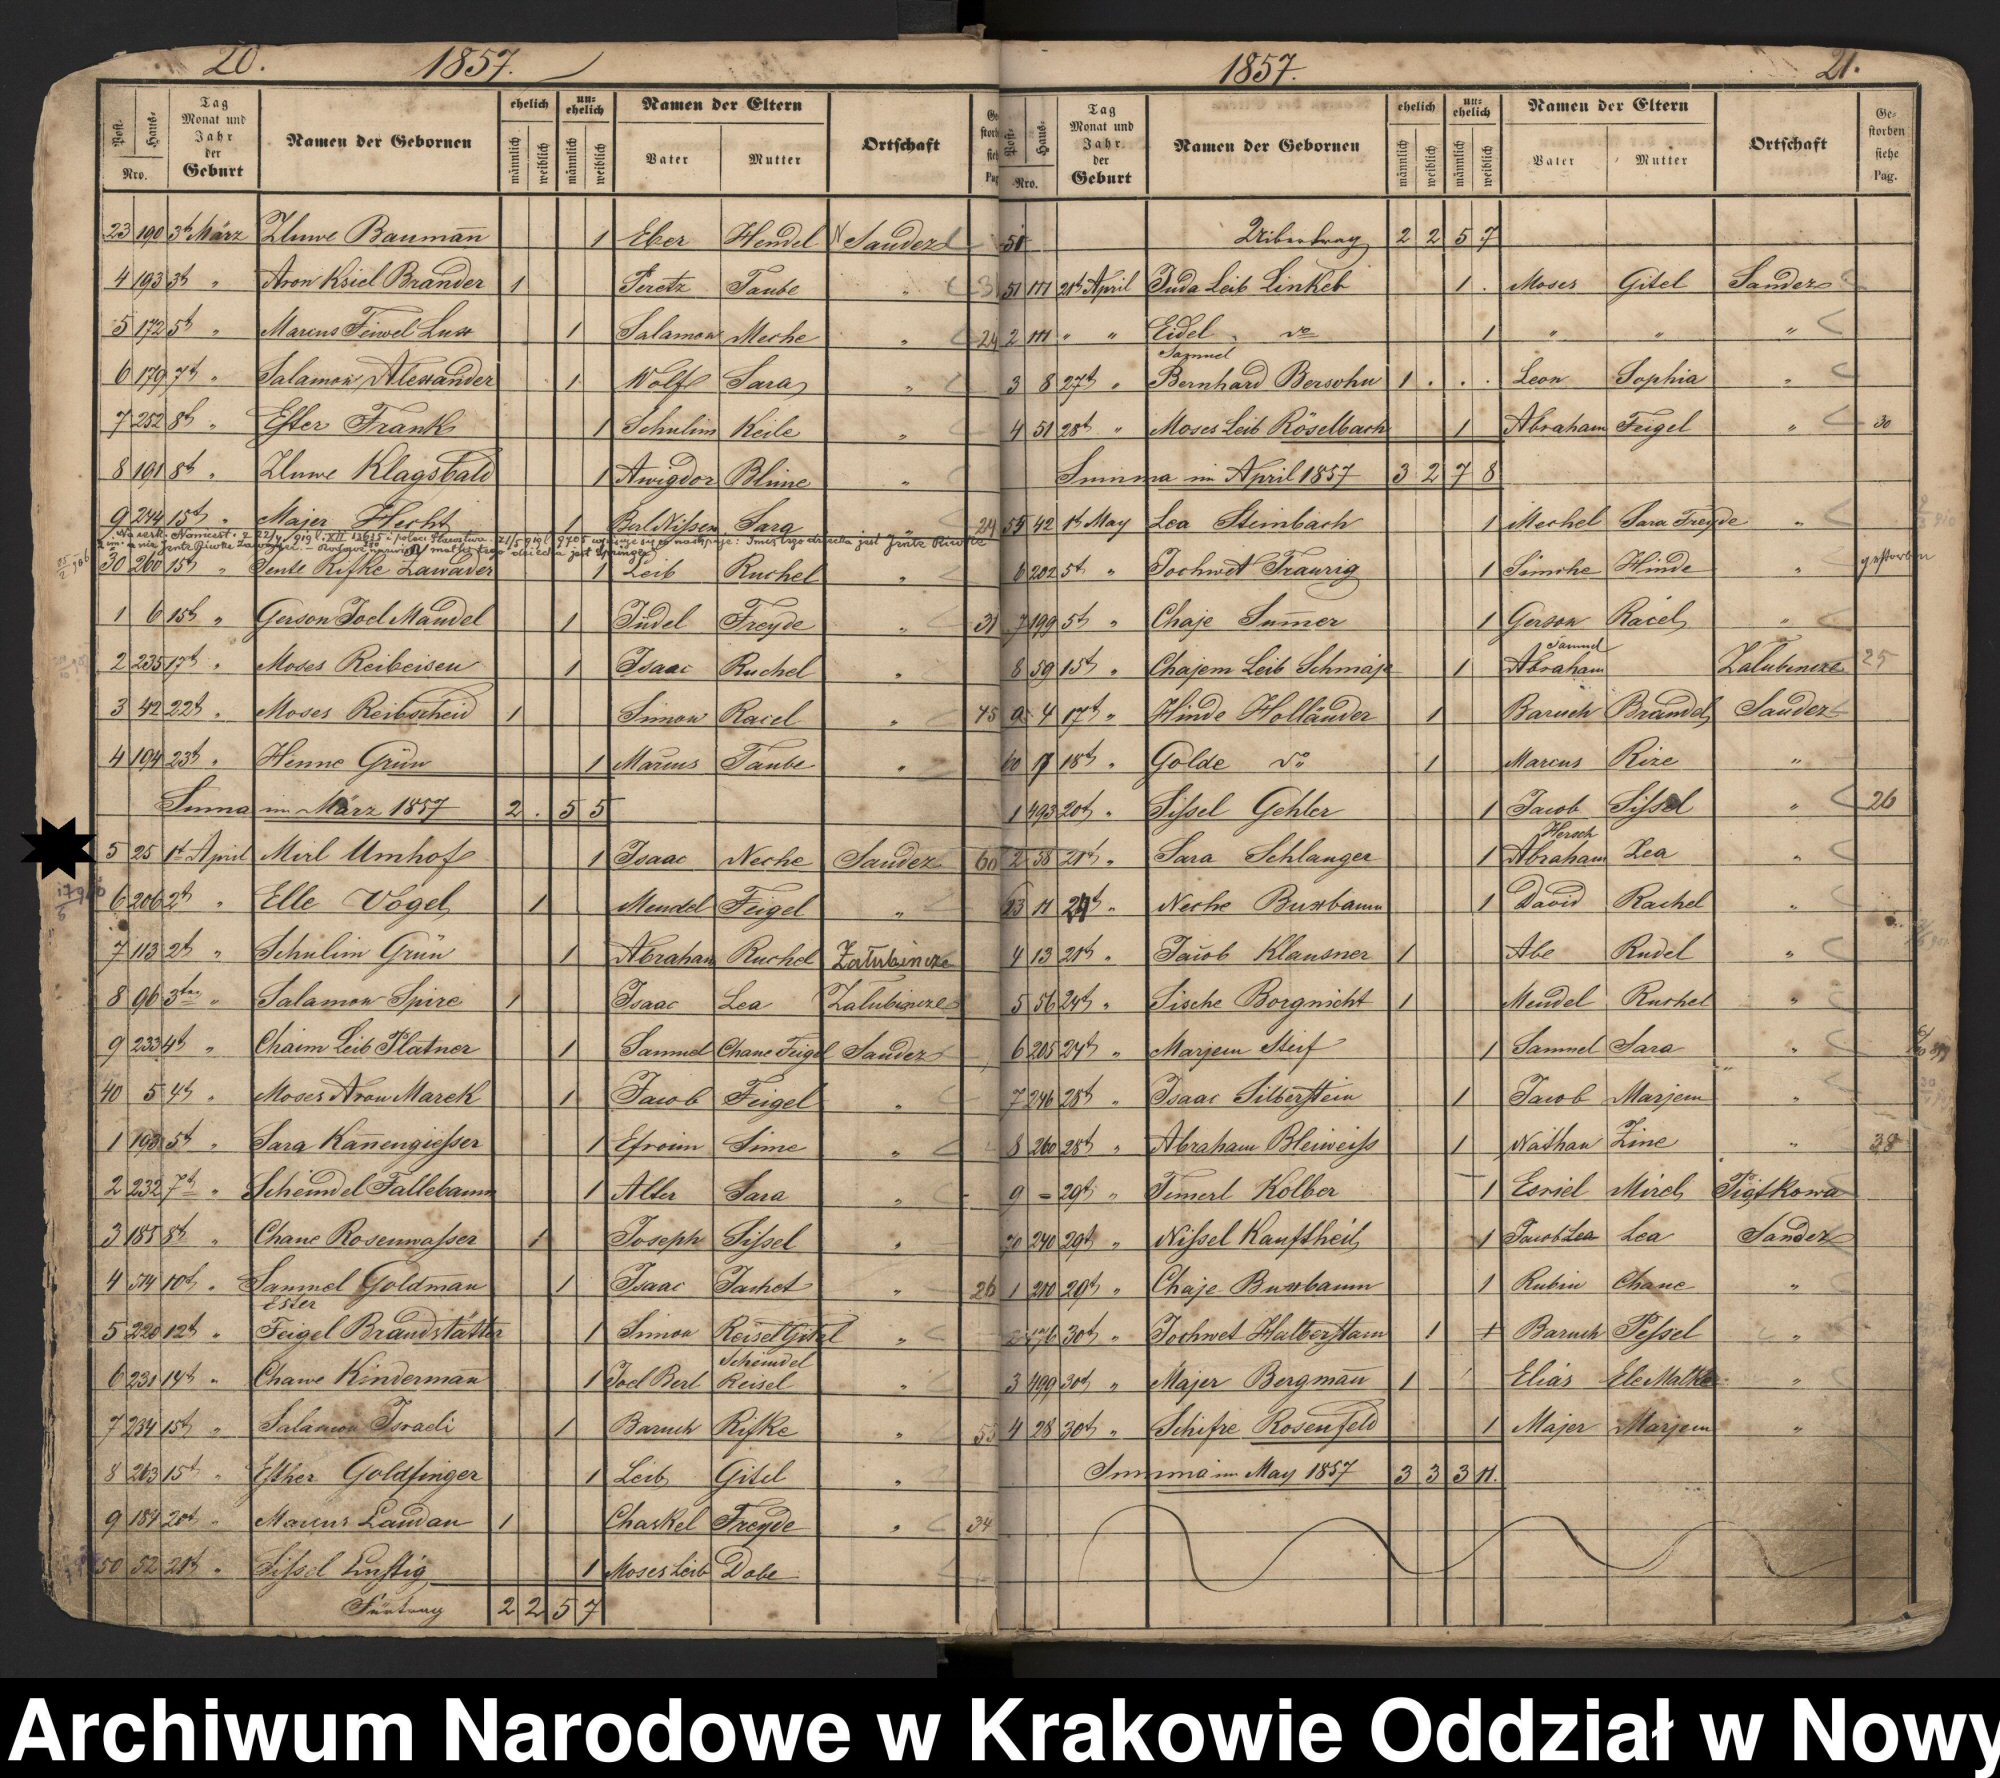 20. 1857.
Post- Haus- Nro. Tag Monat und Jahr der Geburt Namen der Gebornen ehelich männlich weiblich un-ehelich männlich weiblich Namen der Eltern Vater Mutter Ortschaft
23 190 3t März Zluwe Baumann 1 Eber Hendel N Sandez
4 193 3t " Aron Ksiel Brander 1 Peretz Taube "
5 172 5t " Marcus Feiwel Lux 1 Salamon Meche " 24
6 179 7t " Salamon Alexander 1 Wolf Sara "
7 252 8t " Ester Frank 1 Schulim Keile "
8 191 8t " Zluwe Klagsbald 1 Awigdor Blime "
9 244 15t " Majer Hecht 1 Berl Nissen Sara " 24
30 260 15t " Jente Rifke Lawader 1 Leib Ruchel "
1 6 15t " Gerson Joel Mandel 1 Judel Freyde " 31
2 235 17t " Moses Reibeisen 1 Isaac Ruchel "
3 42 22t " Moses Reibscheid 1 Simon Racel " 45
4 194 23t " Henne Grün 1 Marcus Taube "
Suma im März 1857 2 . 5 5
5 25 1t April Mirl Umhof 1 Isaac Neche Sandez 60
6 206 2t " Elle Vogel 1 Mendel Feigel "
7 113 2t " Schulim Grün 1 Abraham Ruchel Załubincze
8 96 3ten " Salamon Spire 1 Isaac Lea Zalubincze
9 233 4t " Chaim Leib Platner 1 Samuel Chane Feigel Sandez
40 5 4t " Moses Aron Marek 1 Jacob Feigel "
1 193 5t " Sara Kanengiesser 1 Efroim Sime "
2 232 7t " Scheindel Fallebaum 1 Alter Sara "
3 185 8t " Chane Rosenwasser 1 Joseph Sissel "
4 514 10t " Samuel Goldman 1 Isaac Jachet " 26
Ester
5 220 12t " Feigel Brandstätter 1 Simon Reisel Gitel "
Scheindel
6 231 14t " Chawe Kinderman 1 Joel Berl Reisel "
7 234 15t " Salamon Israeli 1 Baruch Rifke "
8 263 15t " Esther Goldfinger 1 Leib Gitel "
9 184 20t " Marcus Landau 1 Chaskel Freyde " 34
50 52 21t " Sissel Lustig 1 Moses Leib Dobe
Fürtrag 2 2 5 7
1857. 21.
Post- Haus- Nro. Tag Monat und Jahr der Geburt Namen der Gebornen ehelich männlich weiblich un-ehelich männlich weiblich Namen der Eltern Vater Mutter Ortschaft Ge-storben siehe Pag.
Uibertrag 2 2 5 7
51 111 21t April Juda Leib Linker 1 Moses Gitel Sandez
2 111 " " Eidel do 1 " " "
Samuel
3 8 27t " Bernhard Bersohn 1 Leon Sophia "
4 51 28t " Moses Leib Röselbach 1 Abraham Feigel " 30
Summa im April 1857 3 2 7 8
55 42 1t May Lea Steinbach 1 Mechel Sara Freyde "
6 202 5t " Jochwet Traurig 1 Simche Hinde " gestorben
7 199 5t " Chaje Sumer 1 Gerson Racel "
Samuel
8 59 15t " Chajem Leib Schmaje 1 Abraham Zalubincze 25
9 4 17t " Hinde Holländer 1 Baruch Brandel Sandez
60 18t " Golde do 1 Marcus Rize "
1 493 20t " Sissel Gehler 1 Jacob Sissel " 26
Hersch
2 58 21t " Sara Schlanger 1 Abraham Lea "
63 11 " Neche Buxbaum 1 David Rachel "
4 13 21t " Jacob Klausner 1 Abe Rudel "
5 56 24t " Sische Borgnicht 1 Mendel Ruchel "
6 205 24t " Marjem Steif 1 Samuel Sara "
7 246 28t " Isaac Silberstein 1 Jacob Marjem "
8 260 28t " Abraham Bleiweiss 1 Nathan Zine " 38
9 - 29t " Temerl Kolber 1 Esriel Mirel Piątkowa
70 240 29t " Nissel Kauftheil 1 Jacob Lea Lea Sandez
1 210 29t " Chaje Buxbaum 1 Rubin Chane "
2 176 30t " Jochwet Halberstam 1 Baruch Pessel "
3 499 30t " Majer Bergman 1 Elias Ele Malke "
4 28 30t " Schifre Rosenfeld 1 Majer Marjem "
Summa im May 1857 3 3 3 11.
Archiwum Narodowe w Krakowie Oddział w Nowy